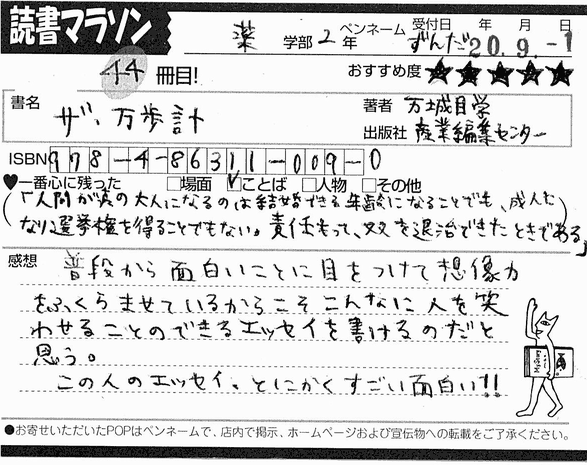 読書マラソン
薬 学部 2 年 ペンネーム ずんだ 受付日 年 月 日 20.9.-1
44 冊目! おすすめ度 ★★★★★
書名 ザ・万歩計
著者 万城目学
出版社 産業編集センター
ISBN 978-4-86311-009-0
♥一番心に残った □場面 ☑ことば □人物 □その他
(「人間が真の大人になるのは結婚できる年齢になることでも、成人に
なり選挙権を得ることでもない。責任もって、奴を退治できたときである」)
感想 普段から面白いことに目をつけて想像力
をふくらませているからこそこんなに人を笑
わせることのできるエッセイを書けるのだと
思う。
この人のエッセイ、とにかくすごい面白い!!
●お寄せいただいたPOPはペンネームで、店内で掲示、ホームページおよび宣伝物への転載をご了承ください。